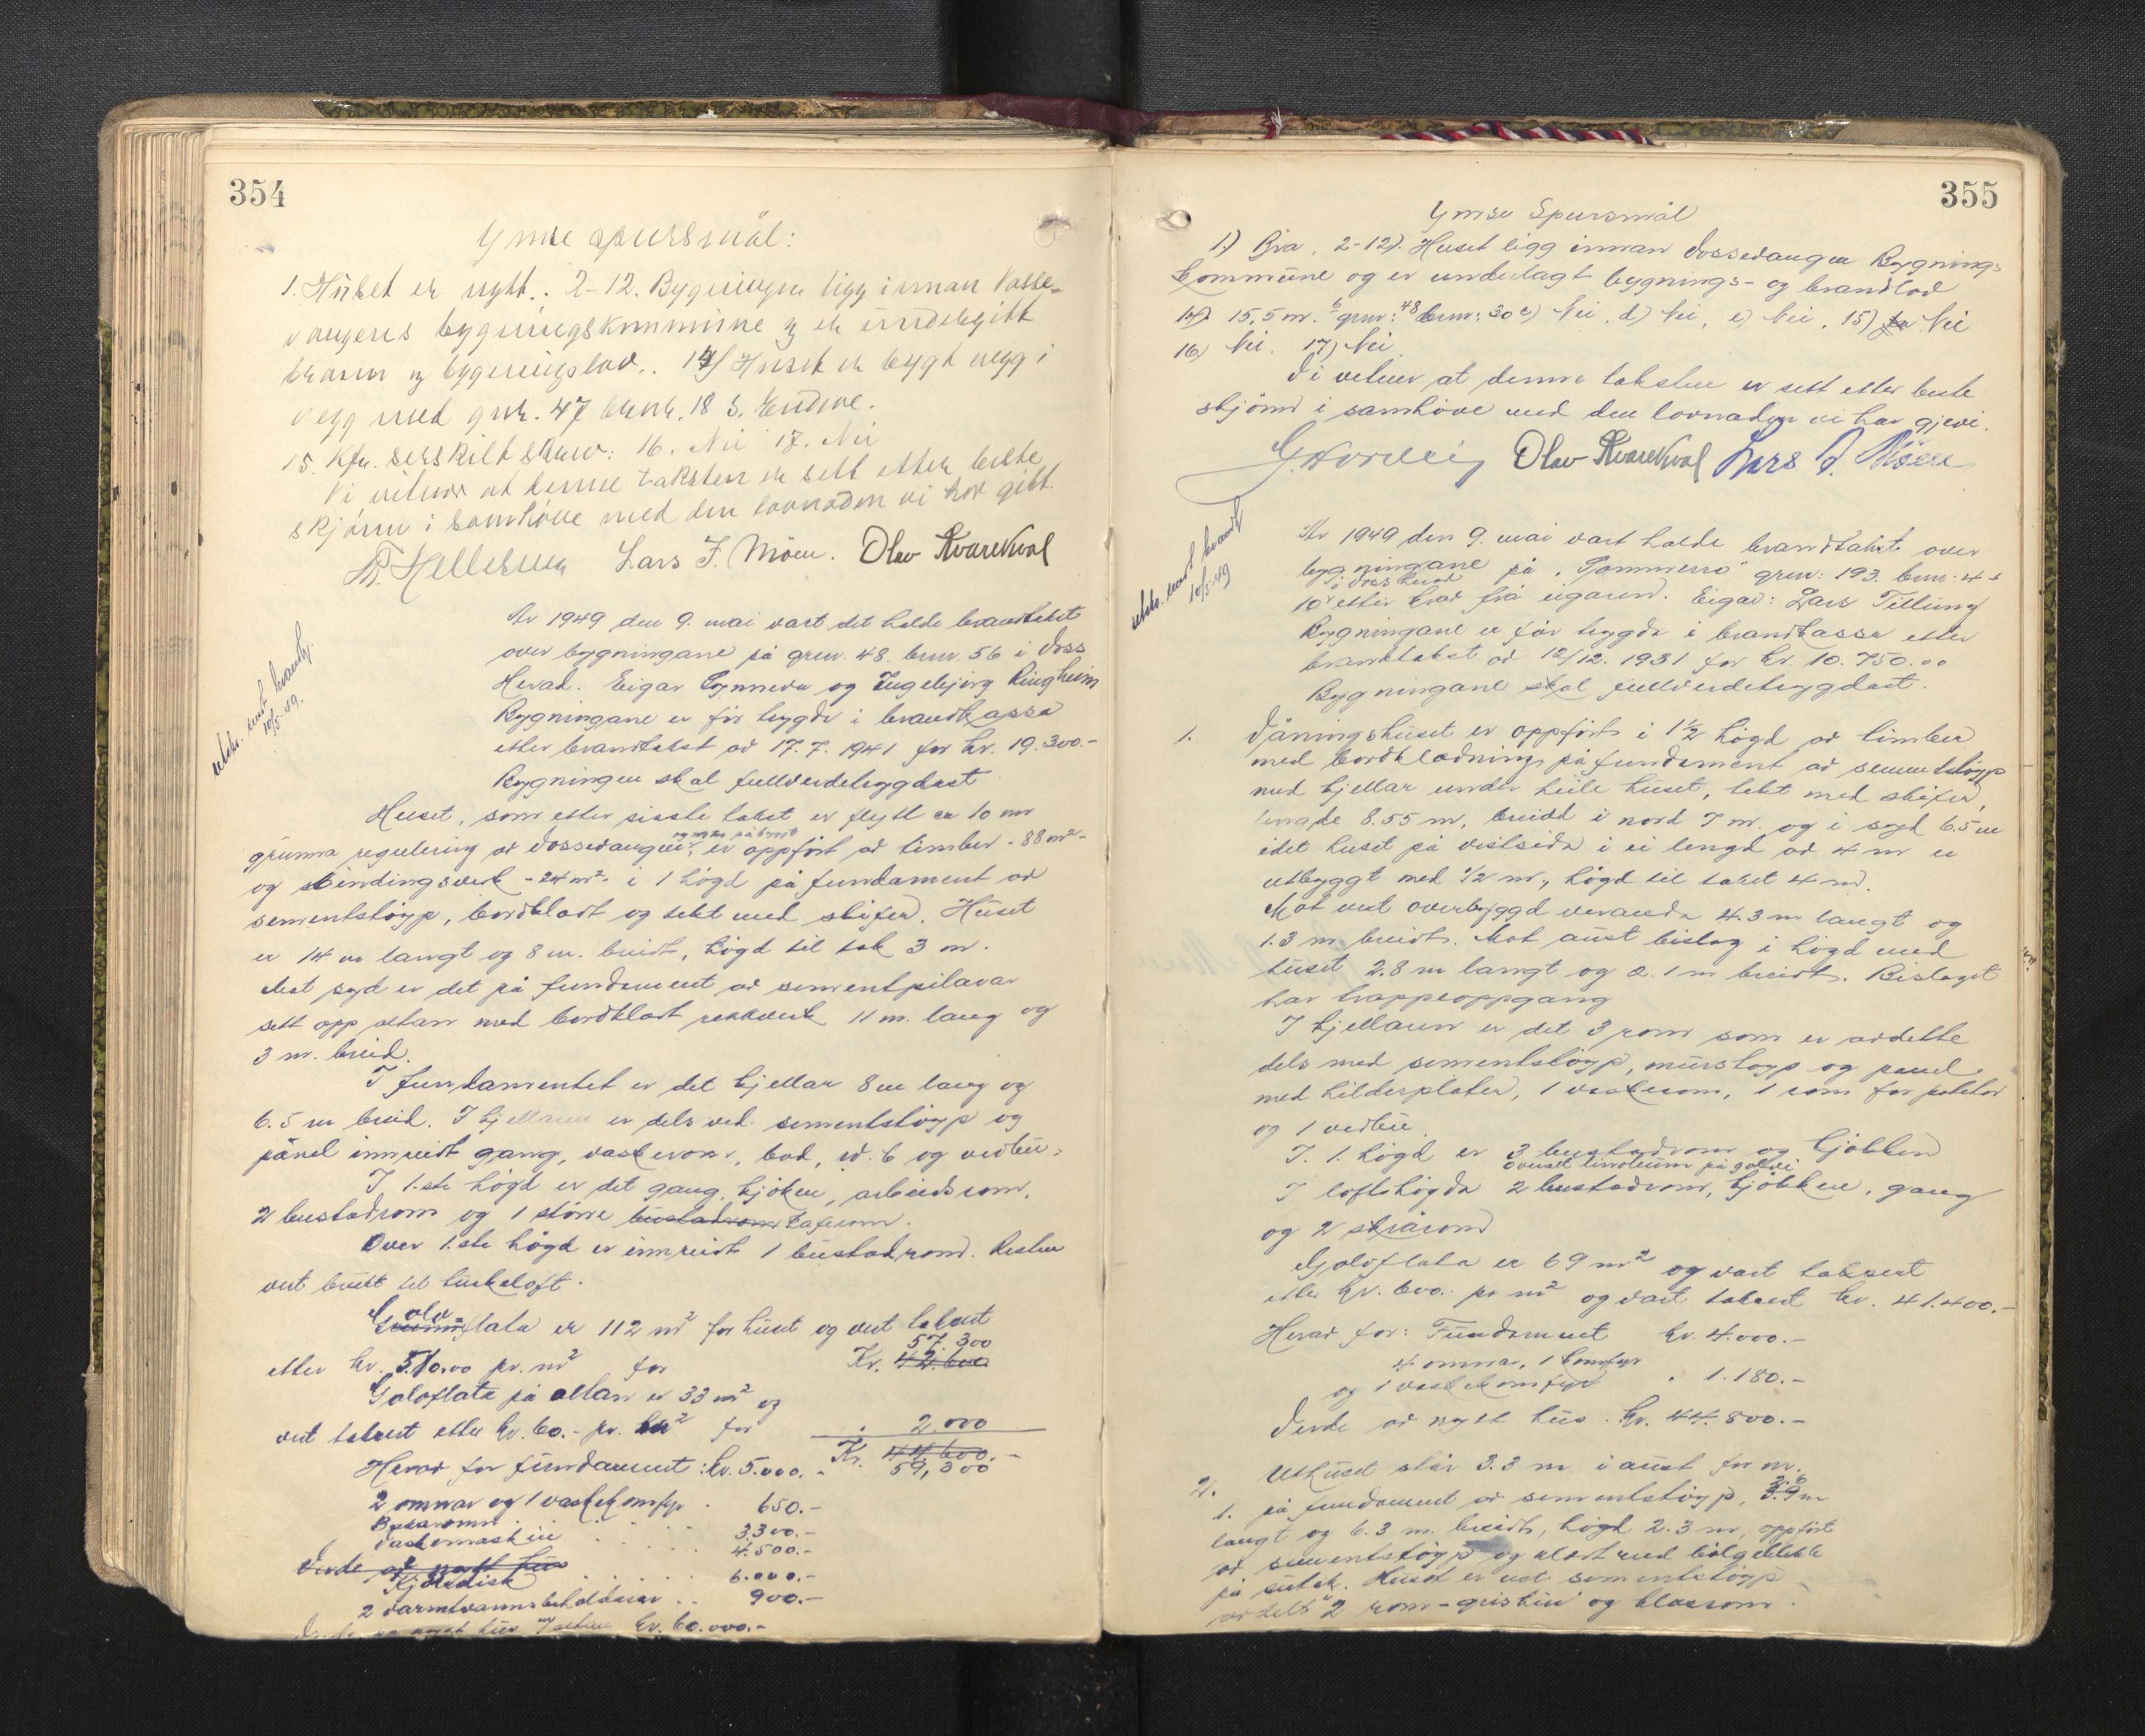 354
Ymse spursmål:
1. Huset er nytt. 2-12. Bygningen ligg innan Vosse-
vangens bygningskommune og er undergitt
brann og bygningslov. 14/ Huset er bygt vegg i
vegg med gnr. 47 brnr. 18 S. Endeve.
15. Kfr. serskilt skriv: 16. Nei 17. Nei
Vi vitnar at denne taksten er sett etter beste
skjønn i samhøve med den lovnaden vi har gitt.
Lars J. Møen. Olav Kvarekval
utskr. sendt brandk.
10/5-49.
År 1949 den 9. mai vart det halde brandtakst
over bygningane på grnr. 48. brnr. 56 i Voss
Herad. Eigar Synneva og Ingebjørg Ringheim
Bygningane er før trygda i brandkassa
etter brandtakst av 17.7.1941 for kr. 19.300.-
Bygningen skal fullverdetrygdast
Huset, som etter sisste takst er flytt ca 10 m
grunna regulering av Vossevangen, er oppført av timber - 88 m² -
og påbygt
og bindingsverk - 24 m² - i 1 høgd på fundament av
sementstøyp, bordkledt og tekt med skifer. Huset
er 14 m langt og 8 m. breidt, høgd til tak 3 m.
Mot syd er det på fundament av sementpilarar
sett opp altan med bordkledt rekkverk 11 m. lang og
3 m. breid.
I fundamentet er det kjellar 8 m lang og
6.5 m breid. I kjellaren er dels ved sementstøyp og
panel innreidt gang, vaskerom, bod, w.c og vedbu.
I 1.ste høgd er det gang, kjøken, arbeidsrom,
2 bustadrom og 1 større bustadrom kaferom.
Over 1.ste høgd er innreidt 1 bustadrom. Resten
vert brukt til turkeloft.
Golvflata er 112 m² for huset og vert taksert
57.300
etter kr. 510.00 pr. m² for Kr. 42.600
Golvflata på altan er 33 m² og
vert taksert etter kr. 60.- pr. m² for 2.000
Kr. 44.600.-
59,300
Herav for fundament: kr. 5.000.-
2 omnar og 1 vaskekomfyr . 650.-
Bakaromn . . . 3.300.-
Vaskemaskin . . . 4.500.-
Verde av nytt hus
Kjøledisk . . . 6.000.-
2 varmtvannsbehaldarar . . 900.-
Verde av nytt hus m/altan kr. 60.000.-
355
Ymse Spursmål
1.) Bra. 2-12). Huset ligg innan Vossevangen Bygnings-
kommune og er underlagt bygnings- og brandlov
14) 15,5 m. b grnr: 48 brnr: 30 c) Nei, d) Nei, e) Nei, 15) Ja Nei
16) Nei. 17) Nei
Vi vitner at denne taksten er sett etter beste
skjønn i samhøve med den lovnaden vi har gjevi.
Olav Kvarekval Lars J. Møen
utskr. sendt brandk
10/5-49
År 1949 den 9. mai vart halde brandtakst over
bygningane på "Tømmerro" grnr: 193. brnr: 4 +
i Voss herad
10 etter krav frå eigaren. Eigar: Lars Tillung
Bygningane er før trygda i brandkassa etter
brandtakst av 12/12. 1931 for kr. 10.750.00
Bygningane skal fullverdetrygdast.
1. Våningshuset er oppført i 1½ høgd av timber
med bordkledning på fundament av sementstøyp
med kjellar under heile huset, tekt med skifer,
lengde 8.55 m, breidd i nord 7 m. og i syd 6.5 m
idet huset på vestsida i ei lengd av 4 m er
utbyggt med 1/2 m, høgd til taket 4 m.
Mot vest overbyggd veranda 4.3 m langt og
1.3 m breidt. Mot aust bislag i høgd med
huset 2.8 m langt og 2.1 m breidt. Bislaget
har trappeoppgang
I kjellaren er det 3 rom som er avdelte
dels med sementstøyp, murstøyp og panel
med hilderplater, 1 vaskerom, 1 rom for poteter
og 1 vedbu.
I 1. høgd er 3 bustadrom og kjøkken
overalt linoleum på golvi
I loftshøgda 2 bustadrom, kjøkken, gang
og 2 skrårom
Golvflata er 69 m² og vart taksert
etter kr. 600.- pr m² og vart taksert kr. 41.400.-
Herav for: Fundament kr. 4.000.-
4 omnar, 1 komfyr
og 1 vaskekomfyr " 1.180.-
Verde av nytt hus. kr. 44.800.-
2. Uthuset står 3.3 m i aust for nr.
1. på fundament av sementstøyp, 3.6 m
langt og 6.3 m. breidt, høgd 2.3 m, oppført
av sementstøyp og kledt med bølgeblekk
på sutak. Huset er ved sementstøyp
avdelt 2 rom - grishus og klosrom.